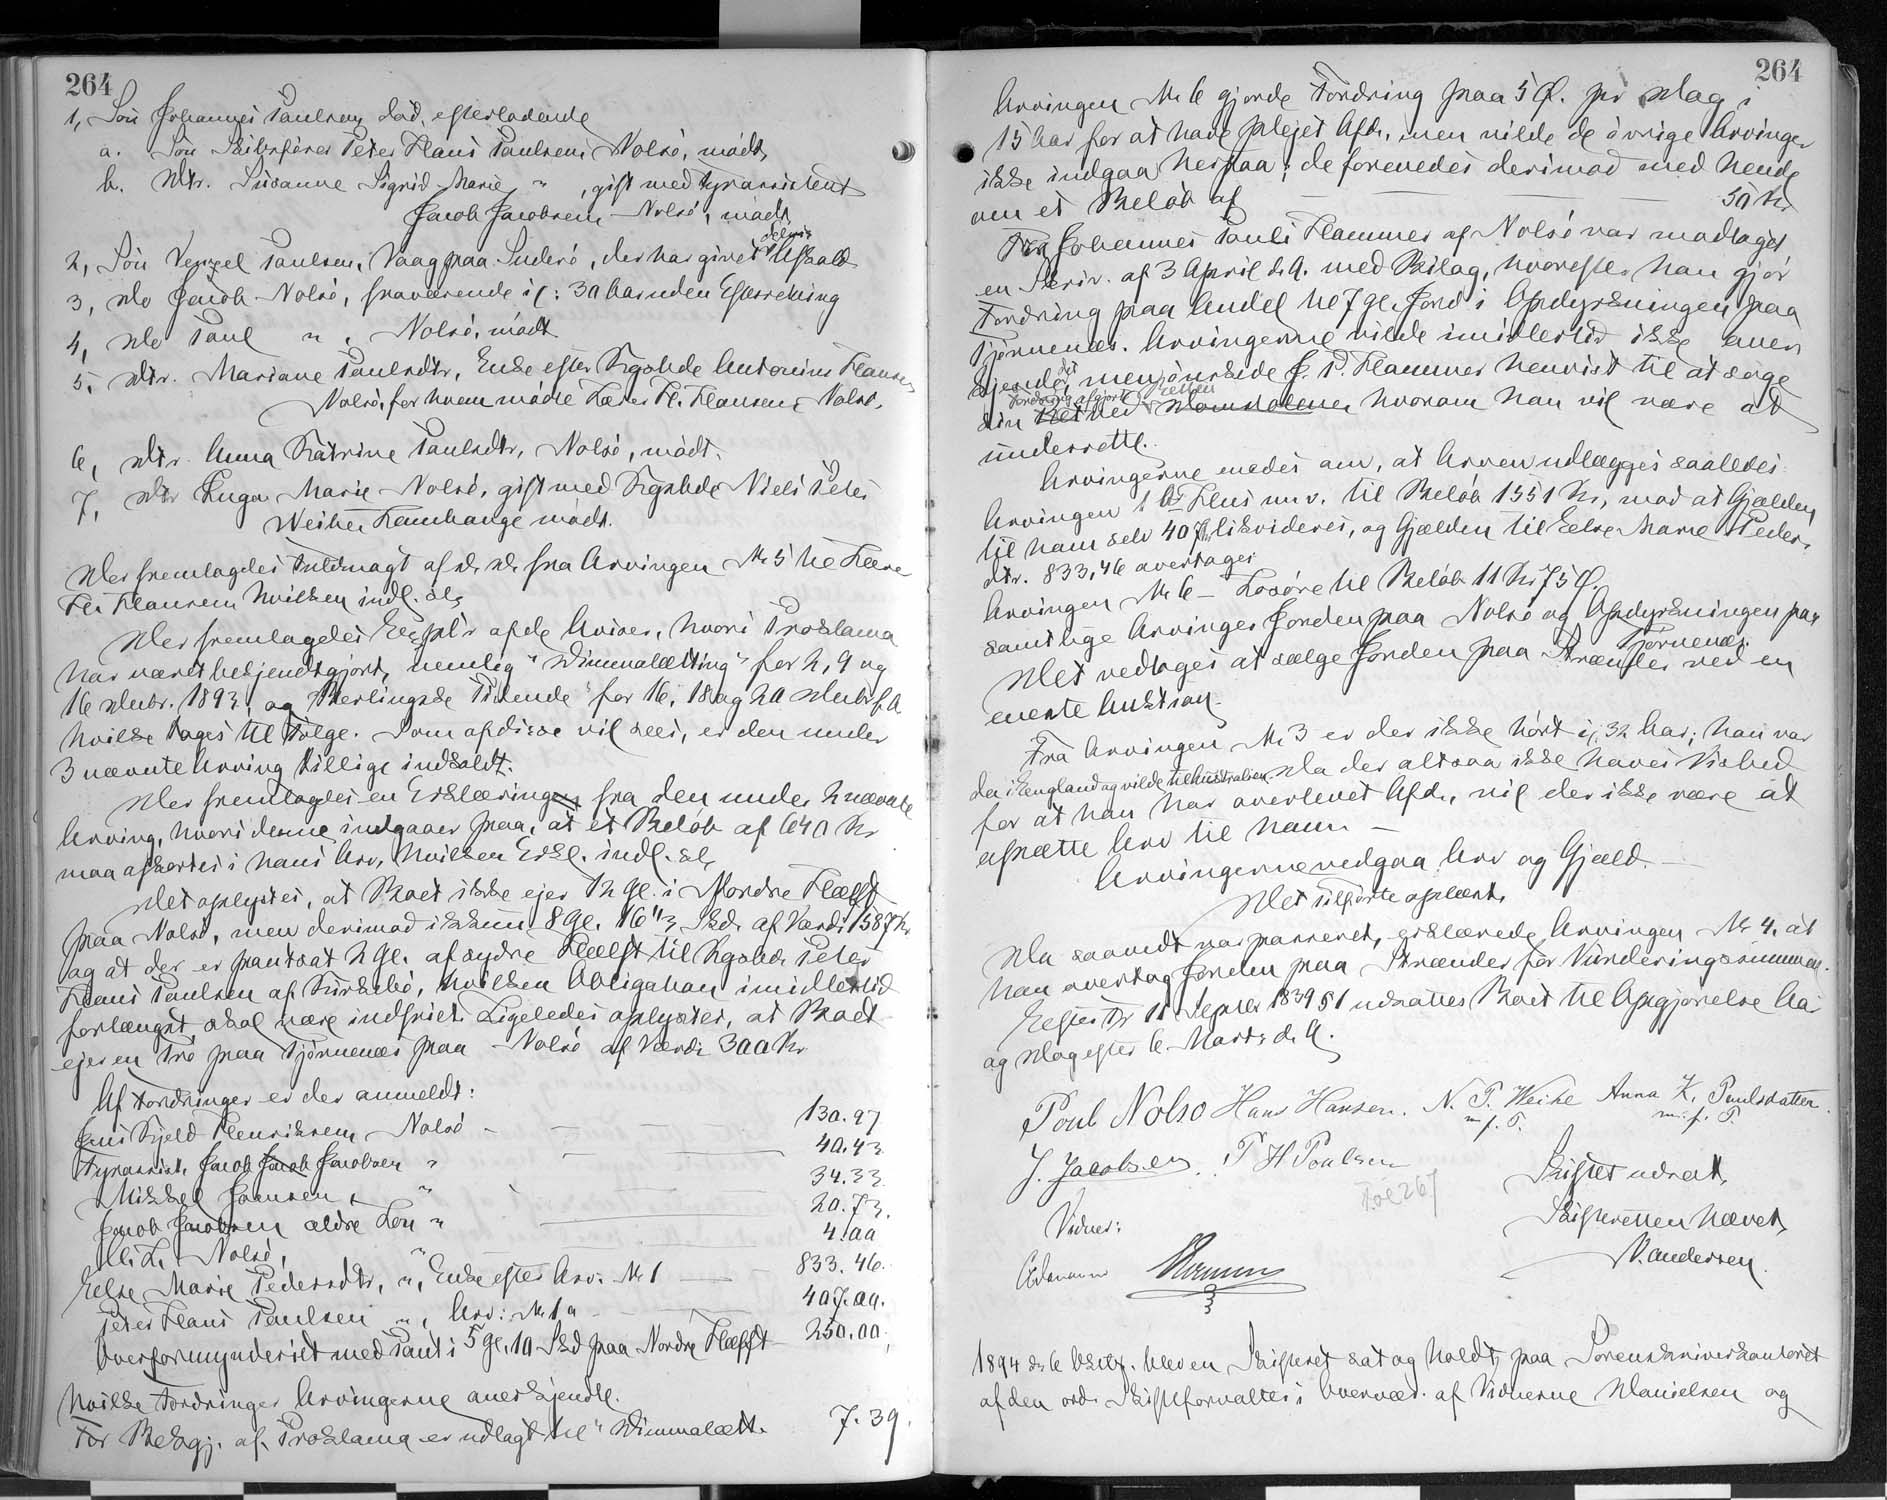 264
1, Søn Johannes Paulsen død, efterladende
a. Søn Skibsfører Peter Hans Paulsen, Nolsø, mødt,
b. Dtr. Susanne Sigrid Marie " , gift med Fyrassistent
Jacob Jacobsen, Nolsø, mødt
2, Søn Venzel Paulsen, Vaag paa Suderø, der har givet delvis Afkald
3, do Jacob Nolsø, fraværende i c: 30 Aar uden Efterretning
4, do Paul " , Nolsø, mødt
5, Dtr. Mariane Paulsdtr, Enke efter Kgsbde Antonius Hansen,
Nolsø, for hvem mødte Lærer H. Hansen, Nolsø.
6, Dtr. Anna Katrine Paulsdtr, Nolsø, mødt.
7, Dtr Inger Marie Nolsø, gift med Kgsbde Niels Peter
Weihe, Famhauge mødt.
Der fremlagdes Fuldmagt af d. d. fra Arvingen No 5 til Lærer
Hs Hansen hvilken indl. sl.
Der fremlagdes Expl'r af de Aviser, hvori Proklama
har været bekjendtgjort, nemlig "Dimmalætting" for 2, 9 og
16 Decbr. 1893, og "Berlingske Tidende" for 16, 18 og 20 Decbr f. A
hvilke tages til Følge. Som af disse vil sees, er den under
3 nævnte Arving tillige indkaldt.
Der fremlagdes en Erklæring fra den under 2 nævnte
Arving, hvori denne indgaaer paa, at et Beløb af 640 Kr
maa afkortes i hans Arv, hvilken Erkl. indl. sl.
Det oplystes, at Boet ikke ejer 12 Gl. i Nordre Hælft
paa Nolsø, men derimod ikkun 8 Gl. 16 Skd. af Værdi 1587 Kr
og at der er pantsat 2 Gl. af søndre Hælft til Kgsbde Peter
Hans Paulsen af Kirkebø, hvilken Obligation imidlertid
forlængst skal være indfriet. Ligeledes oplystes, at Boet
ejer en Trø paa Tjørnenæs paa Nolsø af Værdi 300 Kr
Af Fordringer er der anmeldt:
Jens Kjeld Henriksen, Nolsø - 130.97
Fyrassist. Jacob Jacob Jacobsen " 40.43
Mikkel Joensen, " 34.33
Jacob Jacobsen ældre " 20.73.
Nolsø, " 4.00
Else Marie Pedersdtr, ", Enke efter Arv: No 1 — 833.46.
Peter Hans Paulsen ", Arv: No 1a — 407.00.
Overformynderiet med Pant i 5 Gl. 10 Skd paa Nordre Hælft 250.00,
hvilke Fordringer Arvingerne anerkjendte.
For Bekgj. af Proklama er udlagt til "Dimmalætt. 7.39.
264
Arvingen No 6 gjorde Fordring paa 5 Ø. pr Dag i
15 Aar for at have plejet Afd., men vilde de øvrige Arvinger
ikke indgaa herpaa; de forenedes derimod med hende
om et Beløb af — — — 50 Kr
Fra Johannes Pauli Hammer af Nolsø var modtaget
en Skriv. af 3 April d. A. med Bilag, hvorefter han gjør
Fordring paa Andel til 7 Gl. Jord i Opdyrkningen paa
Tjørnenæs. Arvingerne vilde imidlertid ikke aner-
kjende det, men ønskede J. P. Hammer henvist til at søge
sin Fordring afgjort ved Retten Domstolene, hvorom han vil være at
underrette.
Arvingerne enedes om, at Arven udlægges saaledes:
Arvingen 1 a Huus m. v. til Beløb 1551 Kr, mod at Gjælden
til ham selv 407, likvideres, og Gjælden til Else Marie Peders-
dtr. 833,46 overtages
Arvingen No 6 - Løsøre til Beløb 11 Kr 75 Ø,
samtlige Arvinger Jorden paa Nolsø og Opdyrkningen paa
Tjørnenæs.
Det vedtages at sælge Jorden paa Strænder ved en
eneste Auktion.
Fra Arvingen No 3 er der ikke hørt i c 32 Aar; han var
da i England og vilde til Australien. Da der altsaa ikke haves Vished
for at han har overlevet Afd., vil der ikke være at
afsætte Arv til ham. —
Arvingerne vedgaa Arv og Gjæld. —
Det tilførte oplæst.
Da saavidt var passeret, erklærede Arvingen No 4, at
han overtog Jorden paa Strænder for Vurderingssummen.
Efter Fr 11 Septbr 1839 § 1 udsattes Boet til Opgjørelse Aar
og Dag efter 6 Marts d. A.
Poul Nolsø Hans Hansen. N. P. Weihe Anna K. Paulsdatter.
m. f. P. m. f. P.
J. Jacobsen P H Poulsen
Skiftet udsat.
Fol 267
Vidner:
Skifteretten hævet,
V. Andersen.
1894 d. 6 Oktbr. blev en Skifteret sat og holdt paa Sorenskriverkontoret
af den ord. Skifteforvalter i Overvær. af Vidnerne Danielsen og